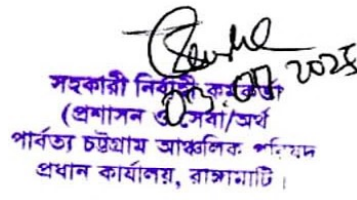 03.07.2025
সহকারী নির্বাহী কর্মকর্তা
(প্রশাসন ও সেবা/অর্থ
পার্বত্য চট্টগ্রাম আঞ্চলিক পরিষদ
প্রধান কার্যালয়, রাঙ্গামাটি।